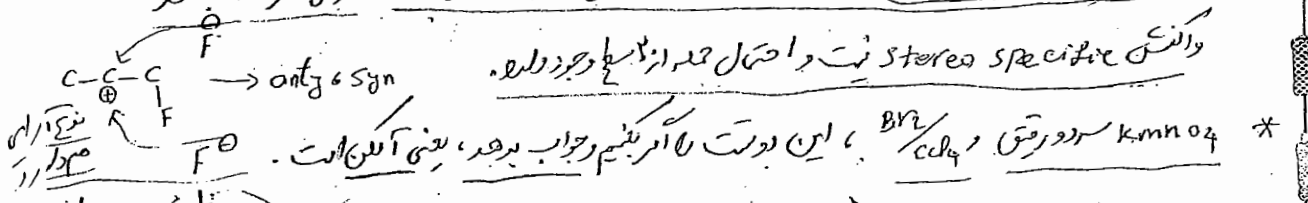 واکنش stereo specific نیست و احتمال حمله از ۲ سطح وجود دارد.
F⊖
C-C-C → anty و syn
⊕
F
F⊖
* KMnO4 سرد و رقیق و Br2/CCl4 ، این دو تست را اگر بگیریم و جواب بدهد، یعنی آلکن است.